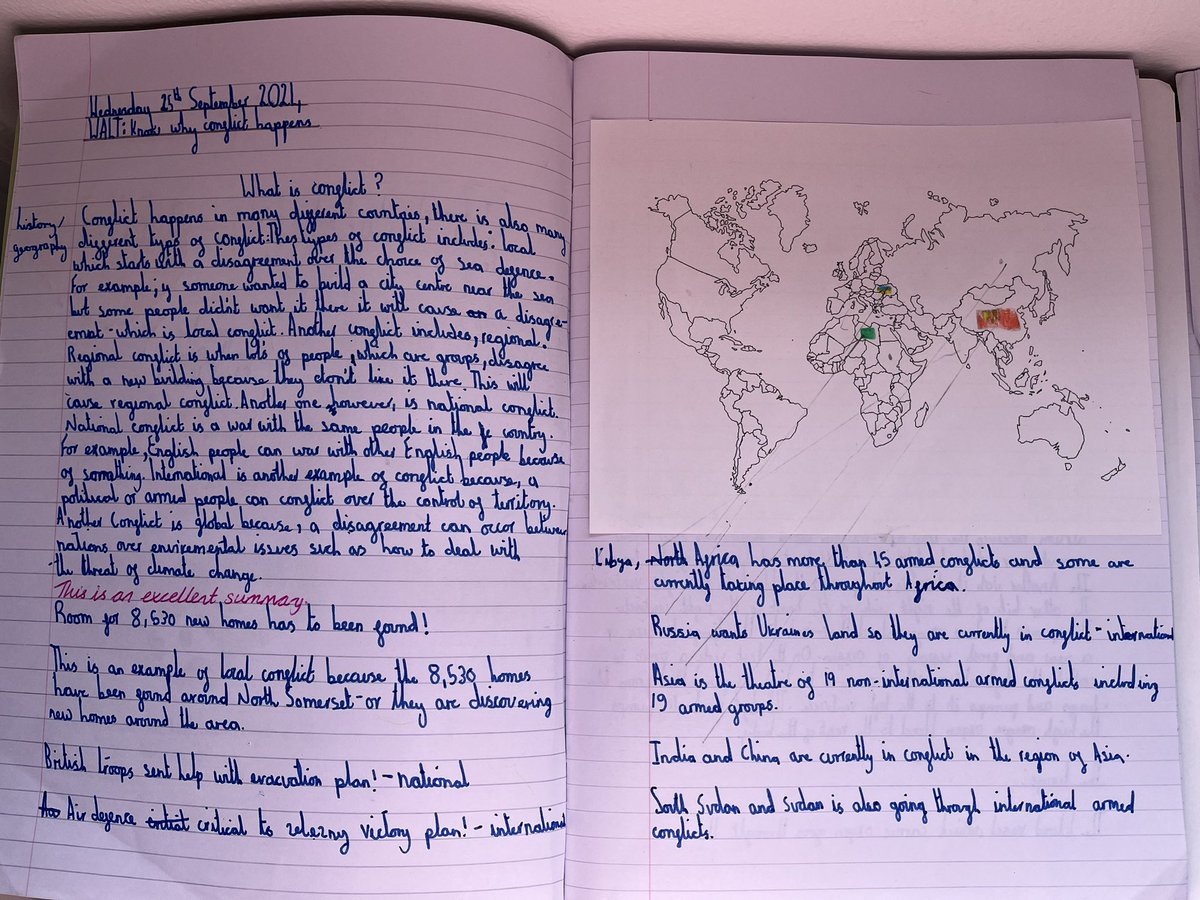 Wednesday 25th September 2024,
WALT: Know why conflict happens
What is conflict?
history/
geography
Conflict happens in many different countries, there is also many
different types of conflict. Thes types of conflict includes: local
which starts with a disagreement over the choice of sea defence.
For example, if someone wanted to build a city centre near the sea
but some people didn't want it there it will cause a disagre-
emnt - which is local conflict. Another conflict includes, regional.
Regional conflict is when lots of people, which are groups, disagree
with a new building because they don't like it there. This will
cause regional conflict. Another one, however, is national conflict.
National conflict is a war with the same people in the country.
For example, English people can war with other English people because
of somthing. International is another example of conflict because, a
political or armed people can conflict over the control of territory.
Another Conflict is global because, a disagreement can occor between
nations over enviremental issues such as how to deal with
-the threat of climate change.
This is an excellent summary.
Room for 8,530 new homes has to been found!
This is an example of local conflict because the 8,530 homes
have been found around North Somerset - or they are discovering
new homes around the area.
British troops sent help with evacvation plan! - national
Air defence critical to zelezny victory plan! - international
Libya, North Africa has more than 45 armed conflicts and some are
currently taking place throughout Africa.
Russia wants Ukraines land so they are currently in conflict - international
Asia is the theatre of 19 non-international armed conflicts including
19 armed groups.
India and China are currently in conflict in the region of Asia.
South Sudan and sudan is also going through international armed
conflicts.